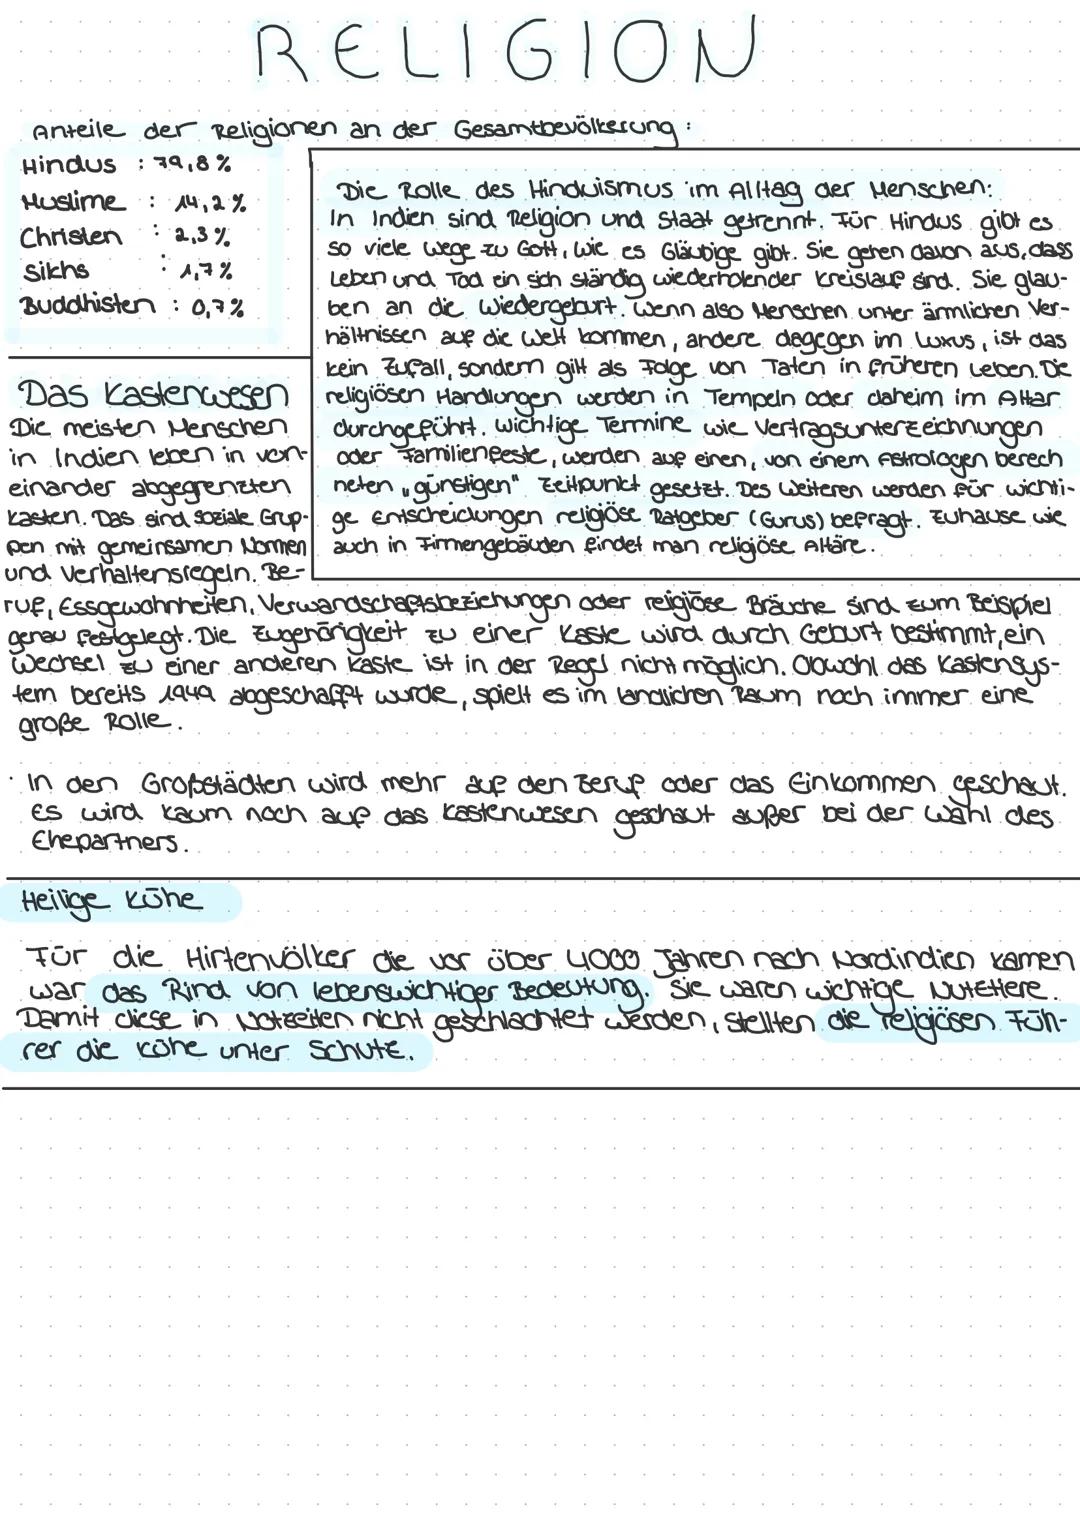 RELIGION
Anteile der Religionen an der Gesamtbevölkerung :
Hindus : 79,8 %
Muslime : 14,2 %
Christen : 2,3 %
Sikhs : 1,7 %
Buddhisten : 0,7 %
Die Rolle des Hinduismus im Alltag der Menschen:
In Indien sind Religion und Staat getrennt. Für Hindus gibt es
so viele Wege zu Gott, wie es Gläubige gibt. Sie gehen davon aus, dass
Leben und Tod ein sich ständig wiederholender Kreislauf sind. Sie glau-
ben an die Wiedergeburt. Wenn also Menschen unter ärmlichen Ver-
hältnissen auf die Welt kommen, andere dagegen im Luxus, ist das
kein Zufall, sondern gilt als Folge von Taten in früheren Leben. Die
religiösen Handlungen werden in Tempeln oder daheim im Altar
durchgeführt. Wichtige Termine wie Vertragsunterzeichnungen
oder Familienfeste, werden auf einen, von einem Astrologen berech
neten „günstigen" Zeitpunkt gesetzt. Des Weiteren werden für wichti-
ge Entscheidungen religiöse Ratgeber (Gurus) befragt. Zuhause wie
auch in Firmengebäuden findet man religiöse Altäre.
Das Kastenwesen
Die meisten Menschen
in Indien leben in von-
einander abgegrenzten
Kasten. Das sind soziale Grup-
pen mit gemeinsamen Normen
und Verhaltensregeln. Be-
ruf, Essgewohnheiten, Verwandschaftsbeziehungen oder religiöse Bräuche sind zum Beispiel
genau festgelegt. Die Zugehörigkeit zu einer Kaste wird durch Geburt bestimmt, ein
Wechsel zu einer anderen Kaste ist in der Regel nicht möglich. Obwohl das Kastensys-
tem bereits 1949 abgeschafft wurde, spielt es im ländlichen Raum noch immer eine
große Rolle.
· In den Großstädten wird mehr auf den Beruf oder das Einkommen geschaut.
Es wird kaum noch auf das Kastenwesen geschaut außer bei der Wahl des
Ehepartners.
Heilige Kühe
Für die Hirtenvölker die vor über 4000 Jahren nach Nordindien kamen
war das Rind von lebenswichtiger Bedeutung. Sie waren wichtige Nutztiere.
Damit diese in Notzeiten nicht geschlachtet werden, stellten die religiösen Füh-
rer die Kühe unter Schutz.